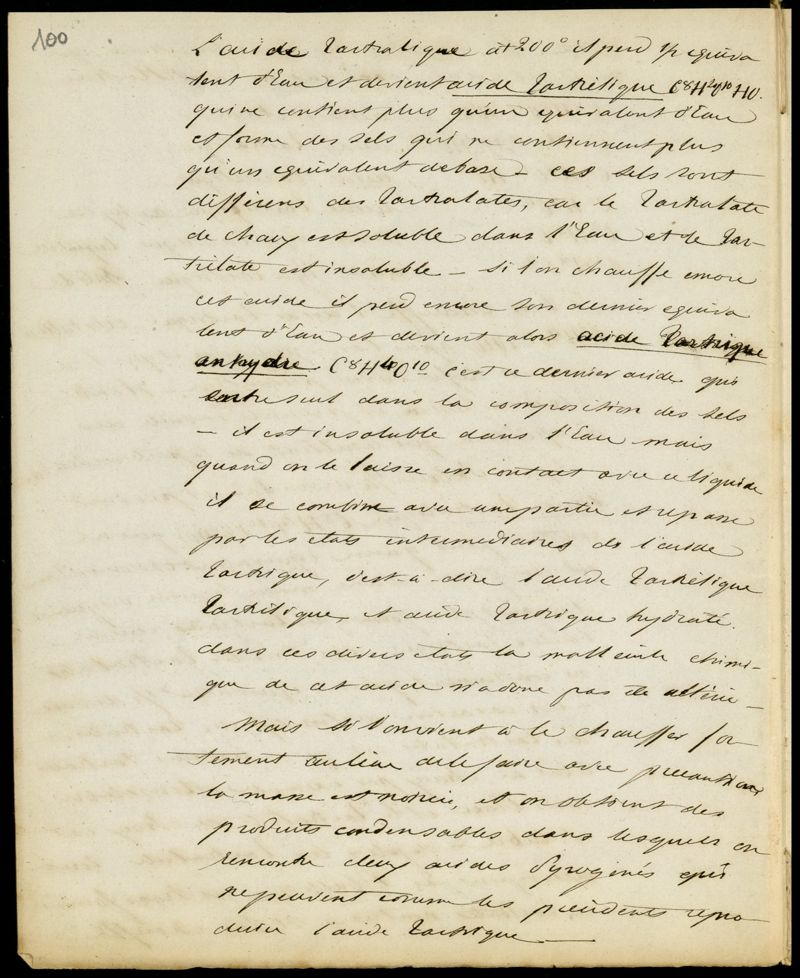 100
L'acide Tartralique à +200° il perd ½ equiva
lent d'Eau et devient acide Tartrélique C8H4O10 HO.
qui ne contient plus qu'un equivalent d'Eau
et forme des sels qui ne contiennent plus
qu'un equivalent de base – ces sels sont
différens des Tartralates, car le Tartralate
de chaux est soluble dans l'Eau et le Tar-
trélate est insoluble – si l'on chauffe encore
cet acide il perd encore son dernier equiva
lent d'Eau et devient alors acide Tartrique
anhydre. C8H4O10 c'est ce dernier acide qui
seul dans la composition des sels
– il est insoluble dans l'Eau mais
quand on le laisse en contact avec ce liquide
il se combine avec une partie et repasse
par les etats intermediaires de l'acide
Tartrique, c'est-à-dire l'acide Tartrélique
et acide Tartrique hydraté.
dans ces divers etats la chimi-
que de cet acide n'a donc pas été altérée –
Mais si l'on vient à le chauffer for-
tement au lieu de le faire avec precaution
la masse est noircie, et on obtient des
produits condensables dans lesquels on
rencontre deux acides Pyrogénés qui
ne peuvent comme les précédents repro
duire l'acide Tartrique –